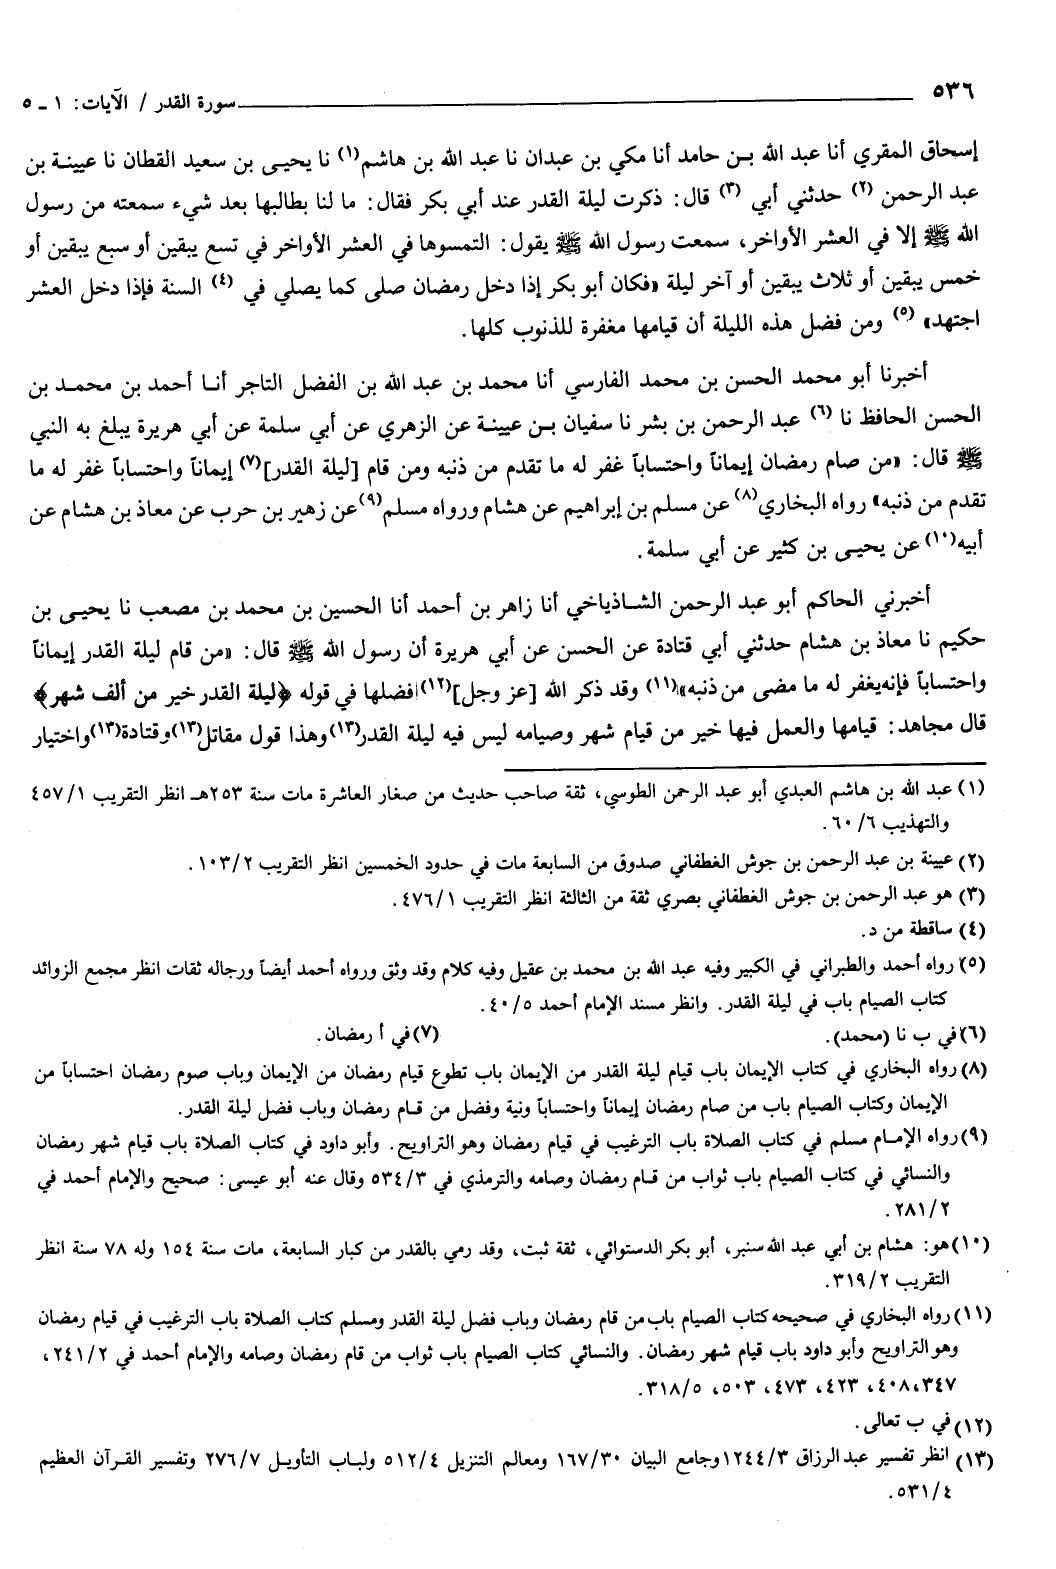 ٥٣٦ سورة القدر / الآيات: ١ ـ ٥
إسحاق المقري أنا عبد الله بـن حامد أنا مكي بن عبدان نا عبد الله بن هاشم(١) نا يحيـى بن سعيد القطان نا عيينـة بن
عبد الرحمن (٢) حدثني أبي (٣) قال: ذكرت ليلة القدر عند أبي بكر فقال: ما لنا بطالبها بعد شيء سمعته من رسول
الله ﷺ إلا في العشر الأواخر، سمعت رسول الله ﷺ يقول: التمسوها في العشر الأواخر في تسع يبقين أو سبع يبقين أو
خمس يبقين أو ثلاث يبقين أو آخر ليلة «فكان أبو بكر إذا دخل رمضان صلى كما يصلي في (٤) السنة فإذا دخل العشر
اجتهد» (٥) ومن فضل هذه الليلة أن قيامها مغفرة للذنوب كلها.
أخبرنا أبو محمد الحسن بن محمد الفارسي أنا محمد بن عبد الله بن الفضل التاجر أنـا أحمد بن محمـد بن
الحسن الحافظ نا (٦) عبد الرحمن بن بشر نا سفيان بـن عيينـة عن الزهري عن أبي سلمة عن أبي هريرة يبلغ به النبي
ﷺ قال: «من صام رمضان إيماناً واحتساباً غفر له ما تقدم من ذنبه ومن قام [ليلة القدر](٧) إيماناً واحتساباً غفر له ما
تقدم من ذنبه» رواه البخاري(٨) عن مسلم بن إبراهيم عن هشام ورواه مسلم(٩) عن زهير بن حرب عن معاذ بن هشام عن
أبيه(١٠) عن يحيـى بن كثير عن أبي سلمة.
أخبرني الحاكم أبو عبد الرحمن الشـاذياخي أنا زاهر بن أحمد أنا الحسين بن محمد بن مصعب نا يحيـى بن
حكيم نا معاذ بن هشام حدثني أبي قتادة عن الحسن عن أبي هريرة أن رسول الله ﷺ قال: «من قام ليلة القدر إيماناً
واحتساباً فإنه يغفر له ما مضى من ذنبه»(١١) وقد ذكر الله [عز وجل](١٢) افضلها في قوله ﴿ليلة القدر خير من ألف شهر﴾
قال مجاهد: قيامها والعمل فيها خير من قيام شهر وصيامه ليس فيه ليلة القدر(١٣) وهذا قول مقاتل(١٣) وقتادة(١٣) واختيار
(١) عبد الله بن هاشم العبدي أبو عبد الرحمن الطوسي، ثقة صاحب حديث من صغار العاشرة مات سنة ٢٥٣هـ انظر التقريب ٤٥٧/١
والتهذيب ٦٠/٦.
(٢) عيينة بن عبد الرحمن بن جوش الغطفاني صدوق من السابعة مات في حدود الخمسين انظر التقريب ١٠٣/٢.
(٣) هو عبد الرحمن بن جوش الغطفاني بصري ثقة من الثالثة انظر التقريب ٤٧٦/١.
(٤) ساقطة من د.
(٥) رواه أحمد والطبراني في الكبير وفيه عبد الله بن محمد بن عقيل وفيه كلام وقد وثق ورواه أحمد أيضاً ورجاله ثقات انظر مجمع الزوائد
كتاب الصيام باب في ليلة القدر. وانظر مسند الإمام أحمد ٤٠/٥.
(٦) في ب نا (محمد). (٧) في أ رمضان.
(٨) رواه البخاري في كتاب الإيمان باب قيام ليلة القدر من الإيمان باب تطوع قيام رمضان من الإيمان وباب صوم رمضان احتساباً من
الإيمان وكتاب الصيام باب من صام رمضان إيماناً واحتساباً ونية وفضل من قـام رمضان وباب فضل ليلة القدر.
(٩) رواه الإمـام مسلم في كتاب الصلاة باب الترغيب في قيام رمضان وهو التراويح. وأبو داود في كتاب الصلاة باب قيام شهر رمضان
والنسائي في كتاب الصيام باب ثواب من قـام رمضان وصامه والترمذي في ٥٣٤/٣ وقال عنه أبو عيسى: صحيح والإمام أحمد في
٢٨١/٢.
(١٠) هو: هشام بن أبي عبد الله سنبر، أبو بكر الدستوائي، ثقة ثبت، وقد رمي بالقدر من كبار السابعة، مات سنة ١٥٤ وله ٧٨ سنة انظر
التقريب ٣١٩/٢.
(١١) رواه البخاري في صحيحه كتاب الصيام باب من قام رمضان وباب فضل ليلة القدر ومسلم كتاب الصلاة باب الترغيب في قيام رمضان
وهو التراويح وأبو داود باب قيام شهر رمضان. والنسائي كتاب الصيام باب ثواب من قام رمضان وصامه والإمام أحمد في ٢٤١/٢،
٣٤٧، ٤٠٨، ٤٢٣، ٤٧٣، ٥٠٣، ٣١٨/٥.
(١٢) في ب تعالى.
(١٣) انظر تفسير عبد الرزاق ١٢٤٤/٣ وجامع البيان ١٦٧/٣٠ ومعالم التنزيل ٥١٢/٤ ولبـاب التأويـل ٢٧٦/٧ وتفسير القـرآن العظيم
٥٣١/٤.